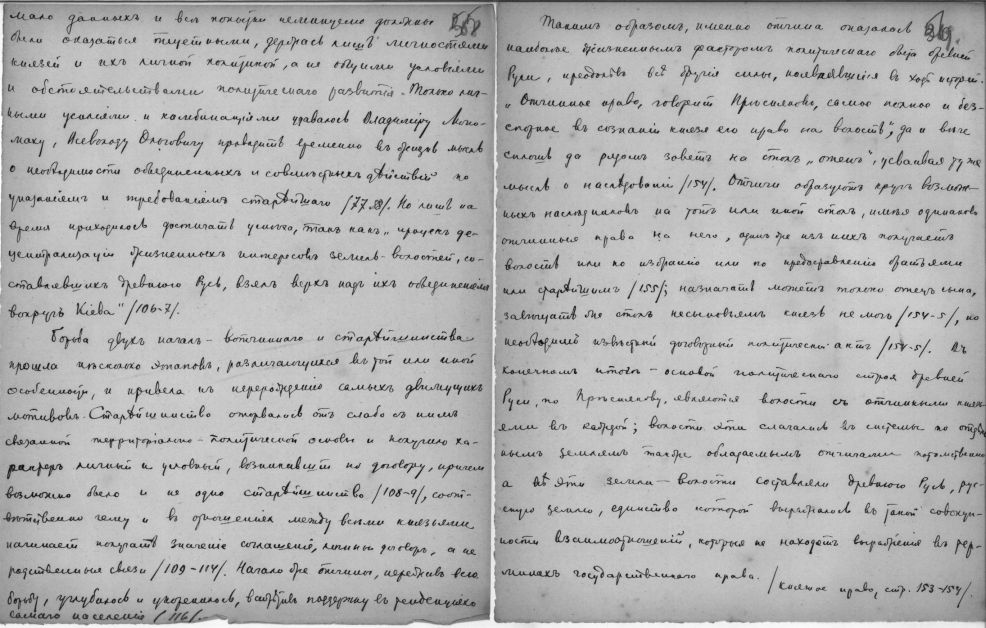 мало данныхъ и все попытки неминуемо должны
были оказаться тщетными, держась лишь личностями
князей и ихъ личной политикой, а не общими условіями
и обстоятельствами политическаго развитія. Только лич-
ными усиліями и комбинаціями удавалось Владиміру Моно-
маху, Всеволоду Ольговичу проводить временно въ жизнь мысль
о необходимости объединенныхъ и совмѣстныхъ дѣйствій по
указаніямъ и требованіямъ старѣйшаго /77, 88/. Но лишь на
время приходилось достигать успѣха, такъ какъ „процесъ де-
централизаціи жизненныхъ интересовъ земель-волостей, со-
ставлявшихъ древнюю Русь, взялъ верхъ надъ ихъ объединеніемъ
вокругъ Кіева" /106-7/.
Борьба двухъ началъ - вотчиннаго и старѣйшинства
прошла нѣсколько этаповъ, различающихся въ той или иной
особенности, и привела къ перерожденію самыхъ движущихъ
мотивовъ. Старѣйшинство оторвалось отъ слабо съ нимъ
связанной территоріально-политической основы и получило ха-
рактеръ личный и условный, возникавшій по договору, причемъ
возможно было и не одно старѣйшинство /108-9/, соот-
вѣтственно чему и въ отношеніяхъ между всѣми князьями
начинаетъ получать значеніе соглашеній, личный договоръ, а не
родственныя связи /109-114/. Начало же отчины, переживъ всю
борьбу, углубилось и укоренилось, встрѣтивъ поддержку въ тенденціяхъ
самаго населенія /116/.
Такимъ образомъ, именно отчина оказалась
наиболѣе жизненнымъ факторомъ политическаго быта древней
Руси, преодолѣвъ всѣ другія силы, появлявшіяся въ ходѣ исторіи.
„Отчинное право, говоритъ Прѣсняковъ, самое полное и без-
спорное въ сознаніи князя его право на волость", да и вѣче
сплошь да рядомъ зоветъ на столъ „отень", усваивая ту же
мысль о наслѣдованіи /154/. Отчичи образуютъ кругъ возмож-
ныхъ наслѣдниковъ на тотъ или иной столъ, имѣя одинаково
отчинныя права на него, одинъ же изъ нихъ получаетъ
волость или по избранію или по предоставленію братьями
или старѣйшимъ /155/; назначать можетъ только отецъ сына,
завѣщать же столъ несыновьямъ князь не могъ /154-5/, но
необходимъ извѣстный договорный политическій актъ /154-5/. Въ
конечномъ итогѣ - основой политическаго строя древней
Руси, по Прѣснякову, являются волости съ отчинными князь-
ями въ каждой; волости эти слагались въ системы по отдѣль-
нымъ землямъ также обладаемымъ отчичами потомственно
а всѣ эти земли-волости составляли древнюю Русь, рус-
скую землю, единство которой выражалось въ такой совокуп-
ности взаимоотношеній, которыя не находятъ выраженія въ тер-
минахъ государственнаго права. /Княжое право, стр. 153-154/.